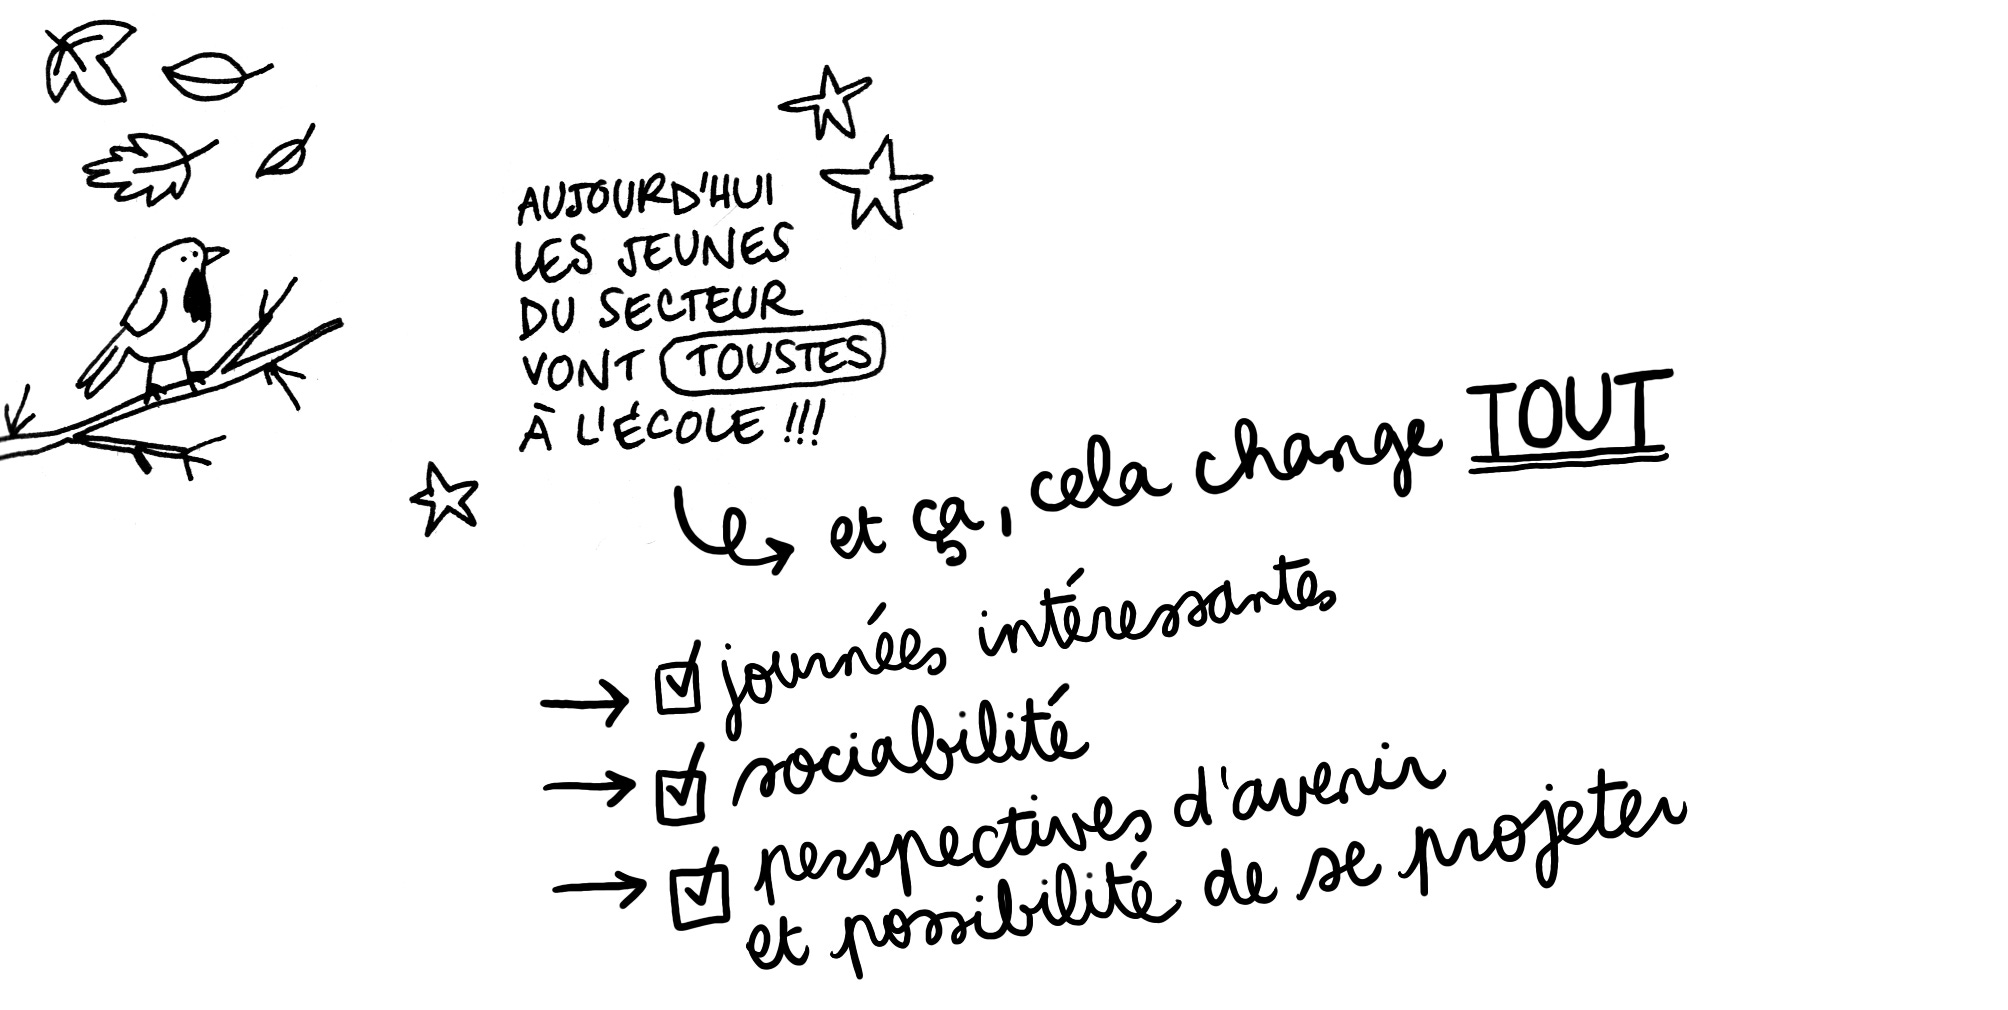 AUJOURD'HUI
LES JEUNES
DU SECTEUR
VONT TOUSTES
À L'ÉCOLE !!!
et ça, cela change TOUT
journées intéressantes
sociabilité
perspectives d'avenir
et possibilité de se projeter